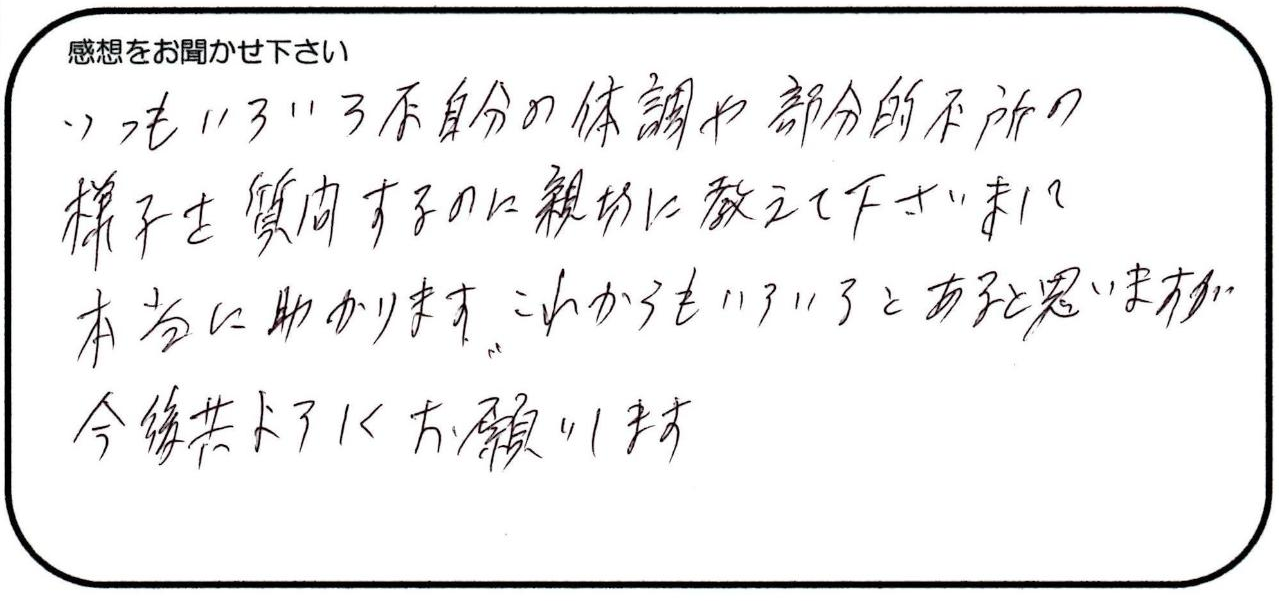 感想をお聞かせ下さい
いつもいろいろ不自分の体調や部分的不所の
様子を質問するのに親切に教えて下さいまして
本当に助かります。これからもいろいろとあると思いますが
今後共よろしくお願いします